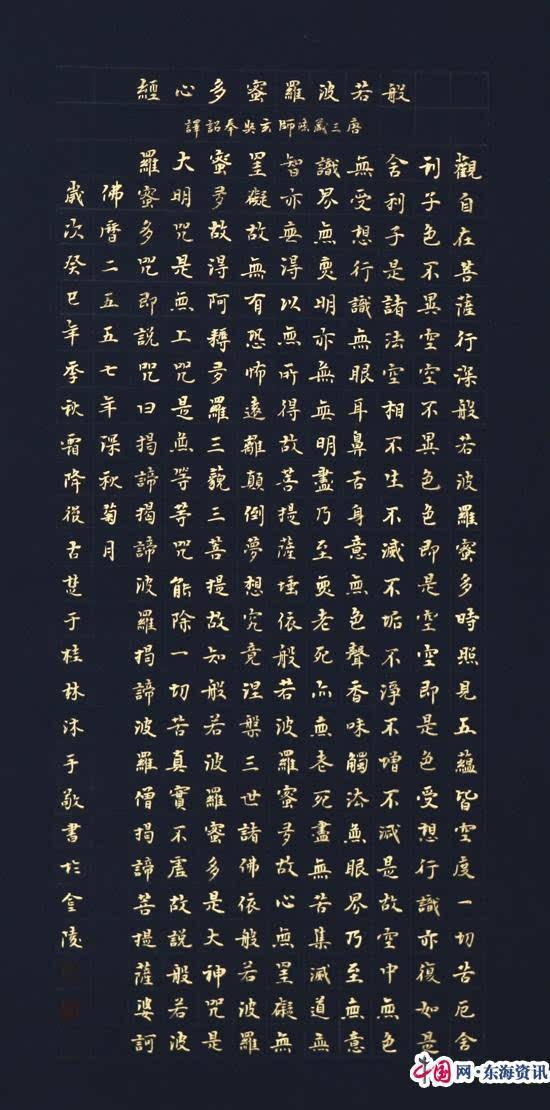 般若波羅蜜多心經
唐三藏法師玄奘奉詔譯
觀自在菩薩行深般若波羅蜜多時照見五蘊皆空度一切苦厄舍
利子色不異空空不異色色即是空空即是色受想行識亦復如是
舍利子是諸法空相不生不滅不垢不淨不增不減是故空中無色
無受想行識無眼耳鼻舌身意無色聲香味觸法無眼界乃至無意
識界無無明亦無無明盡乃至無老死亦無老死盡無苦集滅道無
智亦無得以無所得故菩提薩埵依般若波羅蜜多故心無罣礙無
罣礙故無有恐怖遠離顛倒夢想究竟涅槃三世諸佛依般若波羅
蜜多故得阿耨多羅三藐三菩提故知般若波羅蜜多是大神咒是
大明咒是無上咒是無等等咒能除一切苦真實不虛故說般若波
羅蜜多咒即說咒曰揭諦揭諦波羅揭諦波羅僧揭諦菩提薩婆訶
佛曆二五五七年深秋菊月
歲次癸巳年季秋霜降後古楚于桂林沐手敬書於金陵
中国网·东海资讯